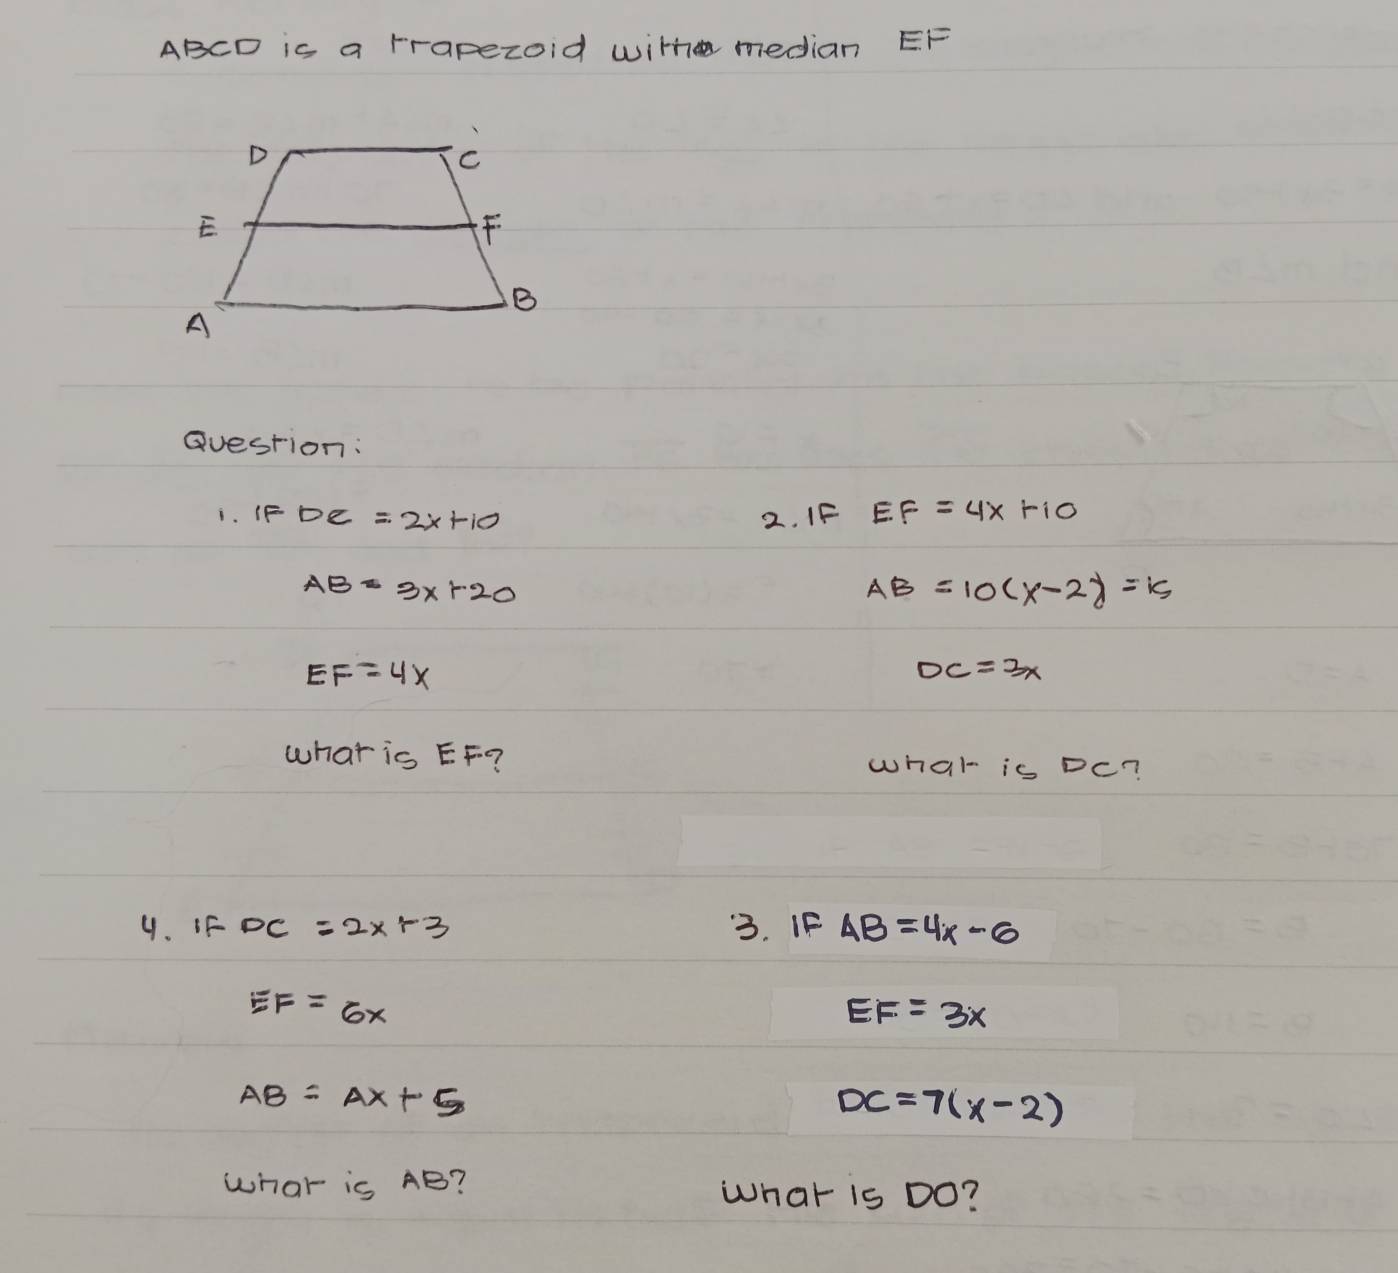 ABCD is a trapezoid with median EF
D
C
E
F
A
B
Question:
1. IF DC = 2x+10
AB = 3x+20
EF = 4x
what is EF?
2. IF EF = 4x+10
AB = 10(x-2) = 15
DC = 3x
what is DC?
4. IF DC = 2x+3
EF = 6x
AB = Ax+5
what is AB?
3. IF AB = 4x-6
EF = 3x
DC = 7(x-2)
what is DO?